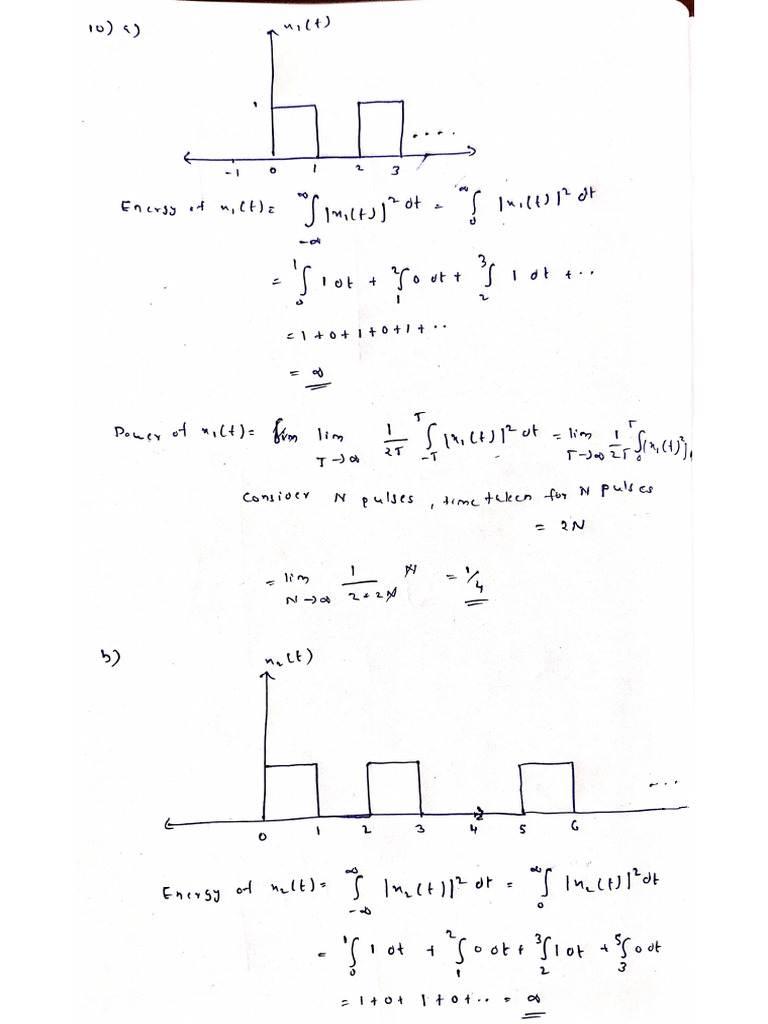 10) a)
x₁(t)
1
-1 0 1 2 3 ....
Energy of x₁(t) = ∫_{-∞}^{∞} |x₁(t)|² dt = ∫_{0}^{∞} |x₁(t)|² dt
= ∫_{0}^{1} 1 dt + ∫_{1}^{2} 0 dt + ∫_{2}^{3} 1 dt + ..
= 1 + 0 + 1 + 0 + 1 + ..
= ∞
Power of x₁(t) = lim_{T→∞} 1/2T ∫_{-T}^{T} |x₁(t)|² dt = lim_{T→∞} 1/2T ∫_{0}^{T} |x₁(t)²|,
Consider N pulses, time taken for N pulses
= 2N
= lim_{N→∞} 1/(2*2N) N = 1/4
b)
x₂(t)
0 1 2 3 4 5 6 ...
Energy of x₂(t) = ∫_{-∞}^{∞} |x₂(t)|² dt = ∫_{0}^{∞} |x₂(t)|² dt
= ∫_{0}^{1} 1 dt + ∫_{1}^{2} 0 dt + ∫_{2}^{3} 1 dt + ∫_{3}^{5} 0 dt
= 1 + 0 + 1 + 0 + .. = ∞